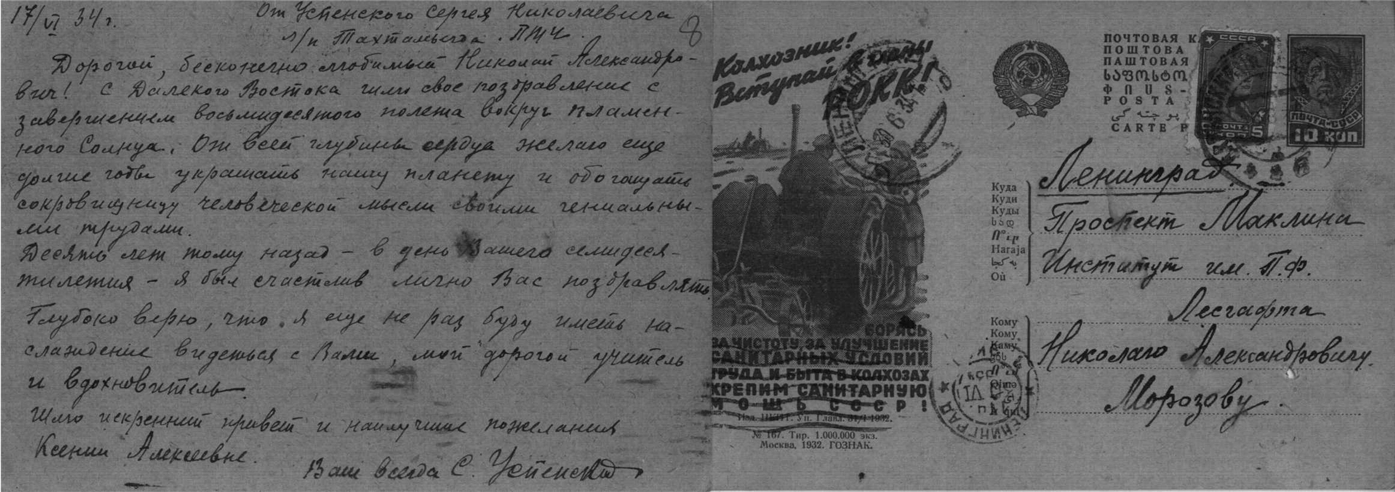 17/VI 34 г.
От Успенского Сергея Николаевича
п/п Тахтамыгда. ПТЧ.
8
Дорогой, бесконечно любимый Николай Александро-
вич! С Далекого Востока шлю свое поздравление с
завершением восьмидесятого полета вокруг пламен-
ного Солнца. От всей глубины сердца желаю еще
долгие годы украшать нашу планету и обогащать
сокровищницу человеческой мысли своими гениальны-
ми трудами.
Десять лет тому назад – в день Вашего семидеся-
тилетия – я был счастлив лично Вас поздравлять.
Глубоко верю, что я еще не раз буду иметь на-
слаждение видеться с Вами, мой дорогой учитель
и вдохновитель.
Шлю искренний привет и наилучшие пожелания
Ксении Алексеевне.
Ваш всегда С. Успенский
Колхозник!
Вступай в члены
РОКК!
БОРЯСЬ
ЗА ЧИСТОТУ, ЗА УЛУЧШЕНИЕ
САНИТАРНЫХ УСЛОВИЙ
ТРУДА И БЫТА В КОЛХОЗАХ
КРЕПИМ САНИТАРНУЮ
МОЩЬ СССР!
№ 167. Тир. 1.000.000 экз.
Москва, 1932. ГОЗНАК.
ПОЧТОВАЯ К
ПОШТОВА
ПАШТОВАЯ
ՓՈՍՏ-
POSTA
CARTE P
СССР
ПОЧТА 5
ПОЧТА-СССР
10 КОП
Куда
Куди
Куды
Haraja
Ленинград
Проспект Маклина
Институт им. П.Ф.
Лесгафта
Кому
Кому
Каму
Николаю Александровичу
Морозову.
ЛЕНИНГРАД